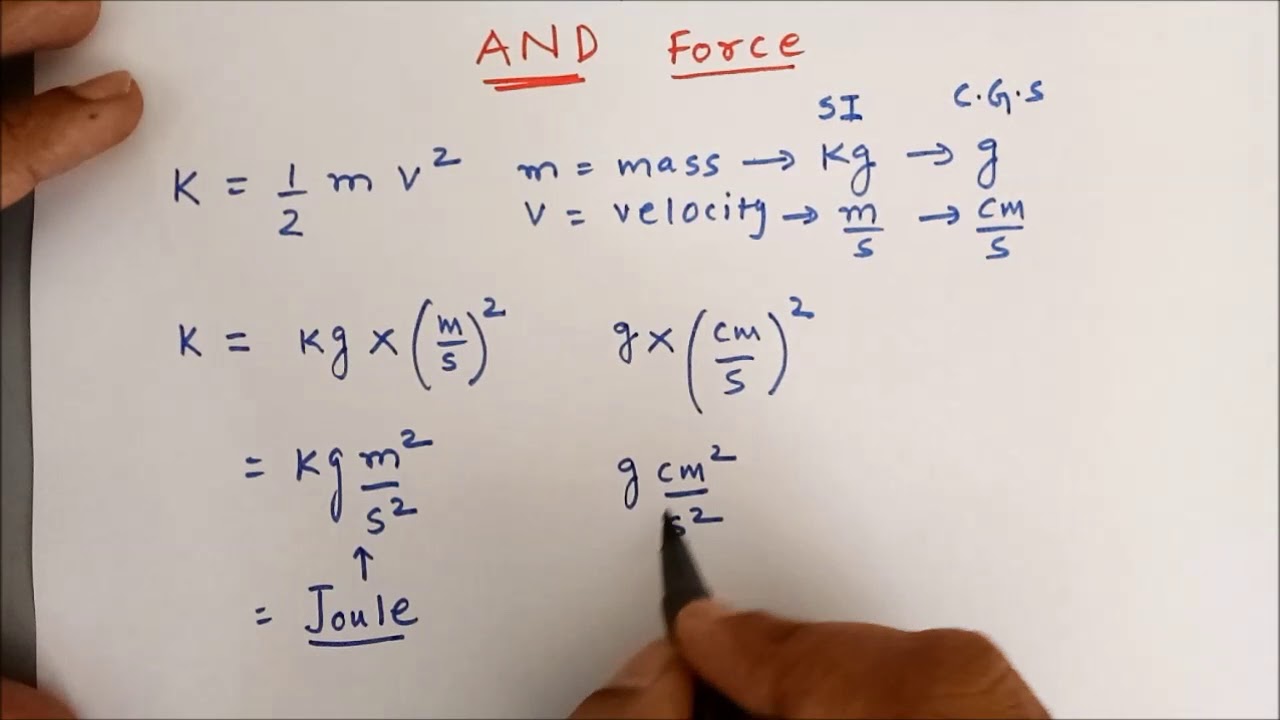 AND Force
SI C.G.S
K = 1/2 m v² m = mass → Kg → g
v = velocity → m/s → cm/s
K = Kg × (m/s)² g × (cm/s)²
= Kg m²/s² g cm²/s²
↑
= Joule